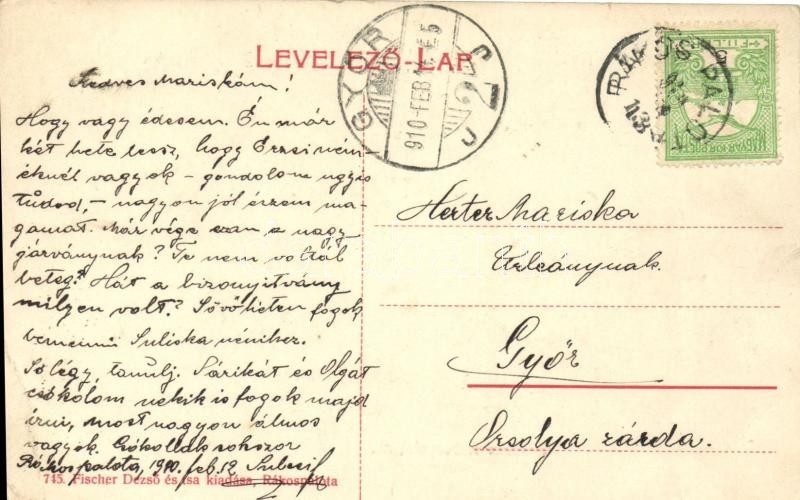 LEVELEZŐ-LAP
GYŐR
910 FEB
RÁKOSPALOTA
MAGYAR KIR. POSTA
Kedves Mariskám!
Hogy vagy édesem. Én már
két hete lesz, hogy Erzsi néni
éknél vagyok – gondolom ugyis
tudod, – nagyon jól érzem ma-
gamat. Már vége van a nagy
járványnak? Te nem voltál
beteg? Hát a bizonyitvány
milyen volt? Jövő héten fogok
bemenni Juliska nénihez.
Jó légy, tanulj. Sárikát és Olgát
csókolom nekik is fogok majd
írni, most nagyon álmos
vagyok. Csókollak sokszor
Rákospalota, 1910. feb. 12
745. Fischer Dezső és tsa kiadása, Rákospalota
Herter Mariska
Urleánynak.
Győr
Orsolya zárda.